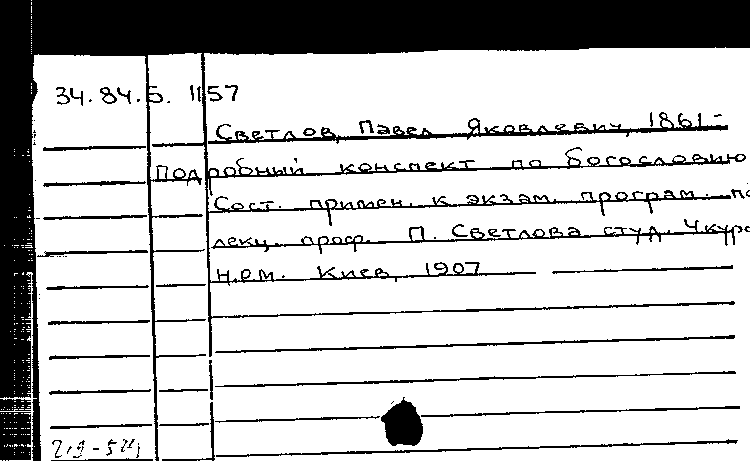 34.84.5. 1157
Светлов, Павел Яковлевич, 1861-
Подробный конспект по богословию
Сост. примен. к экзам. програм. по
лекц. проф. П. Светлова студ. Чкур
Киев, 1907